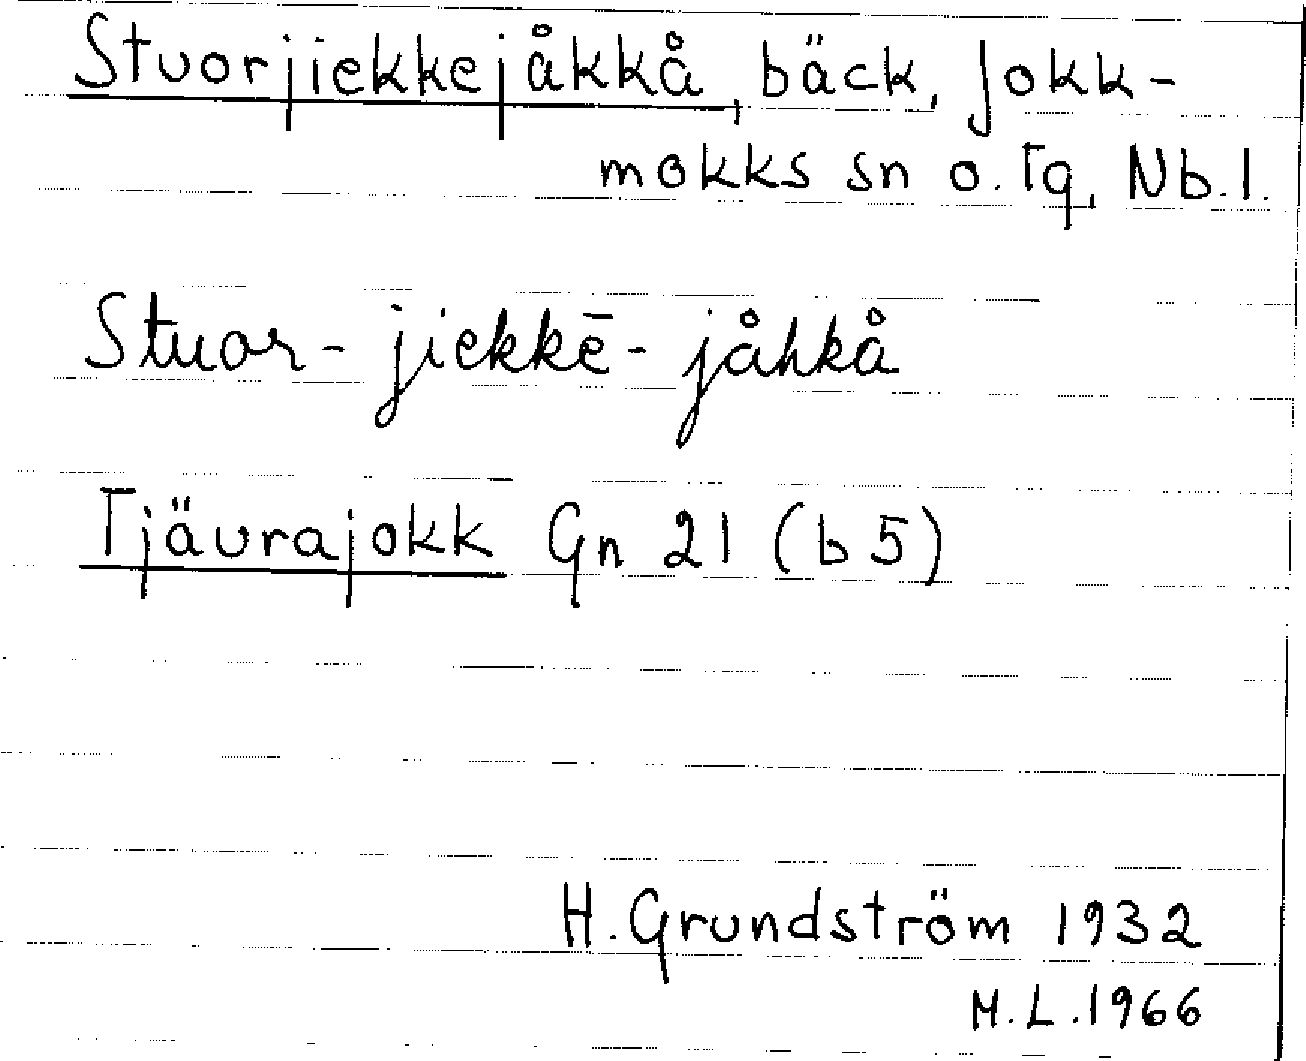 Stuorjiekkejåkkå, bäck, Jokk-
mokks sn o. Tg, Nb. l.
Stuor- jiekkē- jåhkå
Tjäurajokk Gn 21 (b5)
H. Grundström 1932
M.L. 1966